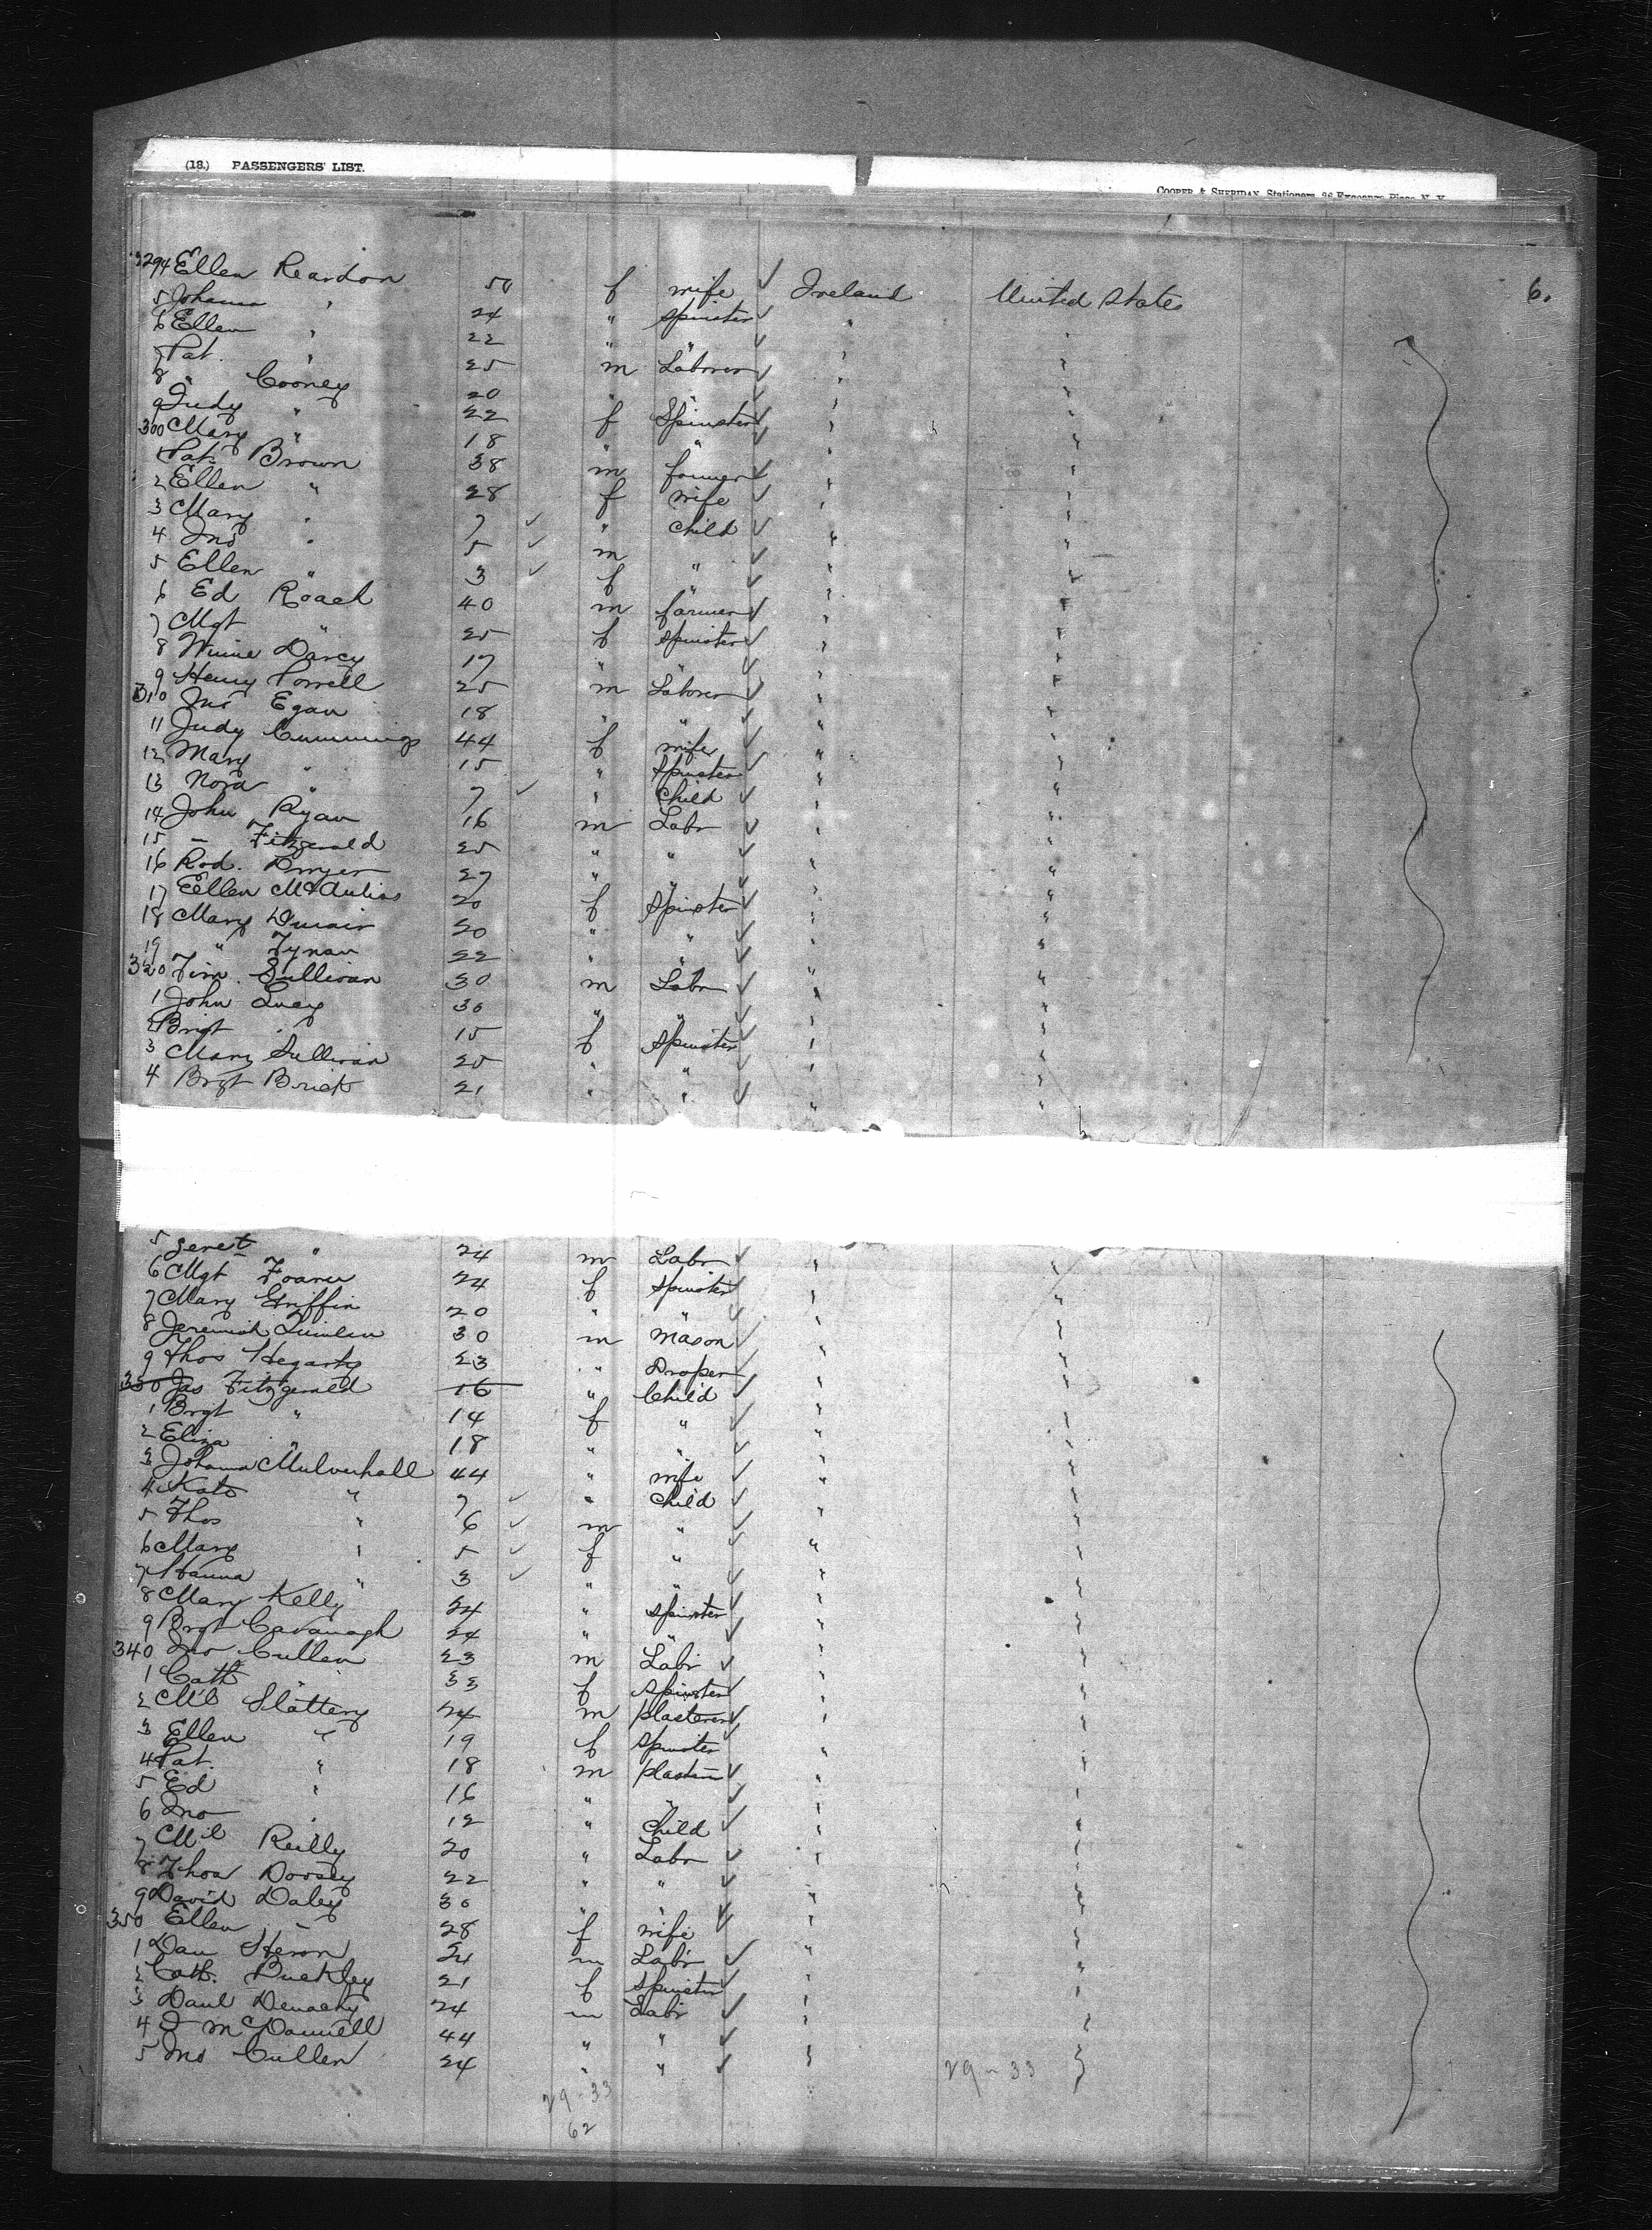 (18.) PASSENGERS' LIST.
COOPER & SHERIDAN, Stationers, 26 Exchange Place, N. Y.
294 Ellen Reardon 50 f wife ✓ Ireland United States 6.
5 Johanna " 24 " Spinster ✓ " "
6 Ellen " 22 " " ✓ " "
7 Pat. " 25 m Laborer ✓ " "
8 " Cooney 20 " " ✓ " "
9 Judy " 22 f Spinster ✓ " "
300 Mary " 18 " " ✓ " "
1 Pat. Brown 38 m farmer ✓ " "
2 Ellen " 28 f wife ✓ " "
3 Mary " 7 ✓ " Child ✓ " "
4 Jno " 5 ✓ m " ✓ " "
5 Ellen " 3 ✓ f " ✓ " "
6 Ed Roach 40 m farmer ✓ " "
7 Mgt " 25 f Spinster ✓ " "
8 Winnie Darcy 17 " " ✓ " "
9 Henry Powell 25 m Laborer ✓ " "
310 Jno Egan 18 " " ✓ " "
11 Judy Cummings 44 f wife ✓ " "
12 Mary " 15 " Spinster ✓ " "
13 Nora " 7 ✓ " Child ✓ " "
14 John Ryan 16 m Labr ✓ " "
15 — Fitzgerald 25 " " ✓ " "
16 Rod. Dwyer 27 " " ✓ " "
17 Ellen 20 f Spinster ✓ " "
18 Mary 20 " " ✓ " "
19 " Tynan 22 " " ✓ " "
320 Tim. Sullivan 30 m Labr ✓ " "
1 John Lucy 30 " " ✓ " "
2 Brigt " 15 f Spinster ✓ " "
3 Mary Sullivan 25 " " ✓ " "
4 Brgt Brick 21 " " ✓ " "
5 " 24 m Labr ✓ " "
6 Mgt 24 f Spinster ✓ " "
7 Mary Griffin 20 " " ✓ " "
8 Jeremiah Quinlan 30 m Mason ✓ " "
9 Thos Hegarty 23 " Draper ✓ " "
330 Jas Fitzgerald 16 " Child ✓ " "
1 Brgt " 14 f " ✓ " "
2 Eliza " 18 " " ✓ " "
3 Johanna Mulverhall 44 " wife ✓ " "
4 Kate " 7 ✓ " Child ✓ " "
5 Thos " 6 ✓ m " ✓ " "
6 Mary " 5 ✓ f " ✓ " "
7 Hanna " 3 ✓ " " ✓ " "
8 Mary Kelly 24 " Spinster ✓ " "
9 Brgt Cavanagh 24 " " ✓ " "
340 Jno Cullen 23 m Labr ✓ " "
1 Cath " 33 f Spinster ✓ " "
2 Ml Slattery 24 m plasterer ✓ " "
3 Ellen " 19 f Spinster " "
4 Pat. " 18 m plasterer ✓ " "
5 Ed " 16 " " ✓ " "
6 Jno " 12 " Child ✓ " "
7 Ml Reilly 20 " Labr ✓ " "
8 Thos Dorsey 22 " " ✓ " "
9 David Daley 30 " " ✓ " "
350 Ellen " 28 f wife ✓ " "
1 Dan Heron 24 m Labr ✓ " "
2 Cath. Buckley 21 f Spinster ✓ " "
3 Danl 24 m Labr ✓ " "
4 J McDonnell 44 " " ✓ " "
5 Jno Cullen 24 " " ✓ " "
29-33 29-33
62